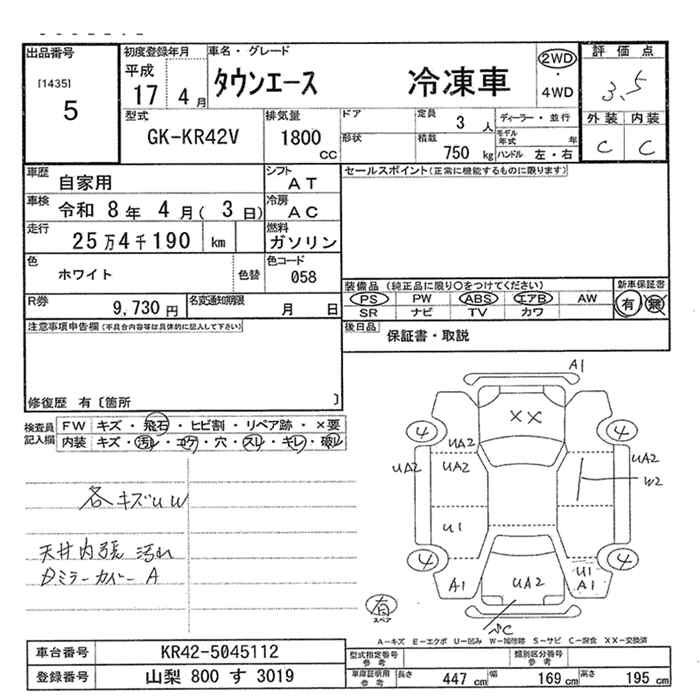 出品番号
[1435]
5
初度登録年月
平成
17 4月
車名・グレード
タウンエース 冷凍車
2WD
・
4WD
評価点
3.5
外装 内装
C C
型式
GK-KR42V
排気量
1800
CC
ドア
形状
定員
3人
積載
750 kg
ディーラー・並行
モデル年式 年
ハンドル 左・右
車歴
自家用
シフト
AT
車検
令和 8年 4月( 3日)
冷房
AC
走行
25万4千190 km
燃料
ガソリン
色
ホワイト
色替
色コード
058
R券
9,730円
名変通知期限
月 日
セールスポイント(正常に機能するものに限ります)
装備品 (純正品に限り○をつけてください)
PS PW ABS エアB AW
SR ナビ TV カワ
新車保証書
有 無
後日品
保証書・取説
注意事項申告欄(不具合内容等は具体的に記入して下さい)
修復歴 有〔箇所 〕
検査員記入欄
FW キズ・飛石・ヒビ割・リペア跡・×要
内装 キズ・汚レ・コゲ・穴・スレ・キレ・破レ
各キズUW
天井内張 汚れ
Dミラーカバー A
A1
XX
4 4
UA2
UA2 UA2 UA2
W2
U1
4 4
A1 UA2 U1
A1
C
有
スペア
A−キズ E−エクボ U−凹み W−補修跡 S−サビ C−腐食 XX−交換済
車台番号 KR42-5045112
登録番号 山梨 800 す 3019
型式指定番号
参考
類別区分番号
参考
車庫証明用
参考
長さ 447 cm 幅 169 cm 高さ 195 cm